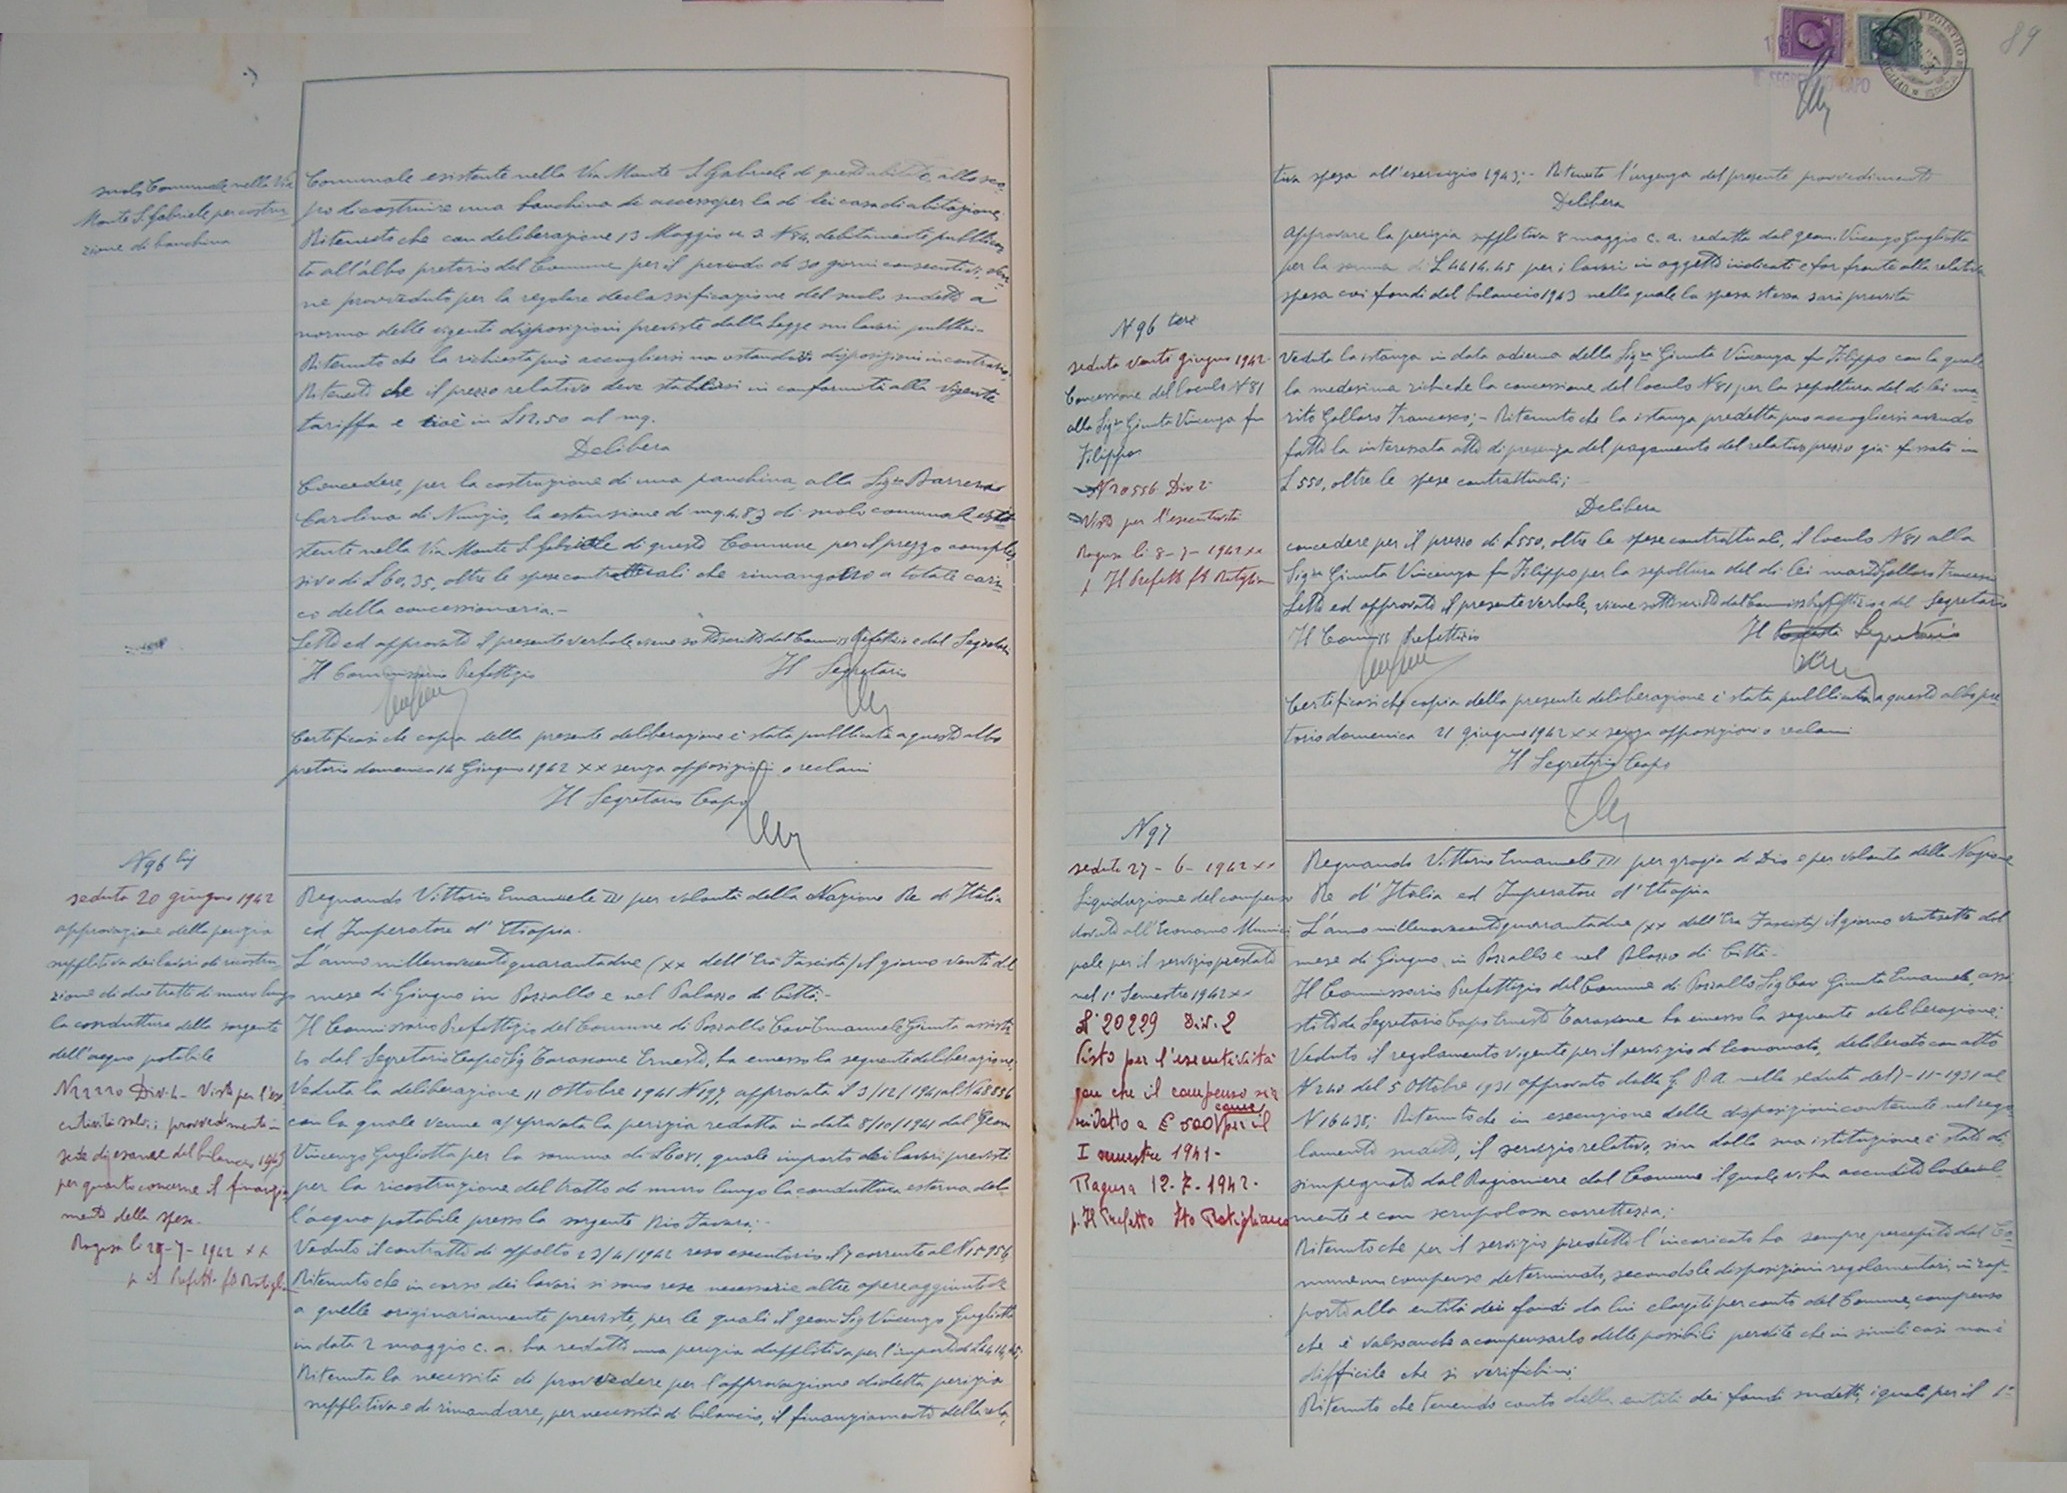 suolo Comunale nella Via
Monte S. Gabriele per costru
zione di banchina
Comunale esistente nella Via Monte S. Gabriele di questo abitato, allo sco
po di costruire una banchina di accesso per la di lei casa di abitazione
Ritenuto che con deliberazione 13 Maggio u. s. N 84, debitamente pubblica
ta all'albo pretorio del Comune per il periodo di 30 giorni consecutivi,
ne provveduto per la regolare declassificazione del suolo sudetto a
norma delle vigenti disposizioni previste dalla Legge sui lavori pubblici-
Ritenuto che la richiesta può accogliersi non ostandovi disposizioni in contrario,
Ritenuto che il prezzo relativo deve stabilirsi in conformità alla vigente
tariffa e cioè in L12,50 al mq.
Delibera
Concedere, per la costruzione di una panchina, alla Sig.ra Barrera
Carolina di Nunzio, la estensione di mq. 4.83 di suolo comunale esi
stente nella Via Monte S. Gabriele di questo Comune per il prezzo comples
sivo di L 60,35, oltre le spese contrattuali che rimangono a totale cari
co della concessionaria.-
Letto ed approvato il presente verbale viene sottoscritto dal Commiss Prefettizio e dal Segretario
Il Commissario Prefettizio Il Segretario
Certificasi che copia della presente deliberazione è stata pubblicata a questo albo
pretorio domenica 14 Giugno 1942 XX senza opposizioni o reclami
Il Segretario Capo
N 96 bis
seduta 20 giugno 1942
approvazione della perizia
supplitiva dei lavori di ricostru-
zione di due tratti di muro lungo
la conduttura della sorgente
dell'acqua potabile
N 22220 Div. 4 - Visto per l'ese
cutività salvi i provvedimenti in
sede di esame del bilancio 1943
per quanto concerne il finanzia
mento della spesa.
Ragusa li 27-7-1942 XX
p. il Prefetto fto
Regnando Vittorio Emanuele III per volontà della Nazione Re di Italia
ed Imperatore d'Etiopia.
L'anno millenovecentoquarantadue (XX dell'Era Fascista) il giorno venti del
mese di Giugno in Pozzallo e nel Palazzo di Città.-
Il Commissario Prefettizio del Comune di Pozzallo Cav. Emanuele Giunta assisti
to dal Segretario Capo Sig Tarascone Ernesto, ha emesso la seguente deliberazione:
Veduta la deliberazione 11 Ottobre 1941 N 197, approvata il 3/12/1941 al N 48856
con la quale venne approvata la perizia redatta in data 8/10/1941 dal Geom
Vincenzo Gugliotta per la somma di L6081, quale importo dei lavori previsti
per la ricostruzione del tratto di muro lungo la conduttura esterna del
l'acqua potabile presso la sorgente Rio Favara;-
Veduto il contratto di appalto 23/4/1942 reso esecutorio il 7 corrente al N 15956,
Ritenuto che in corso dei lavori si sono rese necessarie altre opere aggiuntive
a quelle originariamente previste, per le quali il geom Sig Vincenzo Gugliotta
in data 2 maggio c. a. ha redatto una perizia supplitiva per l'importo di L4414,45;
Ritenuta la necessità di provvedere per l'approvazione di detta perizia
supplitiva e di rimandare, per necessità di bilancio, il finanziamento della rela
89
SEGRETARIO CAPO
tiva spesa all'esercizio 1943;- Ritenuta l'urgenza del presente provvedimento
Delibera
approvare la perizia supplitiva 8 maggio c. a. redatta dal geom. Vincenzo Gugliotta
per la somma di L 4414.45 per i lavori in oggetto indicati e far fronte alla relativa
spesa coi fondi del bilancio 1943 nella quale la spesa stessa sarà prevista
N 96 ter
seduta venti giugno 1942
Concessione del loculo N 81
alla Sig.ra Giunta Vincenza fu
Filippo
N 20556 Div 2
Visto per l'esecutività
Ragusa li 8-7-1942 XX
p Il Prefetto fto
Veduta la istanza in data odierna della Sig.ra Giunta Vincenza fu Filippo con la quale
la medesima richiede la concessione del loculo N 81 per la sepoltura del di lei ma
rito Gallaro Francesco;- Ritenuto che la istanza predetta può accogliersi avendo
fatto la interessata atto di presenza del pagamento del relativo prezzo già fissato in
L 550, oltre le spese contrattuali;-
Delibera
concedere per il prezzo di L550, oltre le spese contrattuali, il loculo N 81 alla
Sig.ra Giunta Vincenza fu Filippo per la sepoltura del di lei marito Gallaro Francesco
Letto ed approvato il presente verbale, viene sottoscritto dal Commiss Prefettizio e dal Segretario
Il Commiss Prefettizio Il Podestà Segretario
Certificasi che copia della presente deliberazione è stata pubblicata a questo albo pre
torio domenica 21 giugno 1942 XX senza opposizioni o reclami
Il Segretario Capo
N 97
seduta 27-6-1942 XX
Liquidazione del compenso
dovuto all'Economo Munici
pale per il servizio prestato
nel 1° Semestre 1942 XX
N° 20229 Div. 2
Visto per l'esecutività
con che il compenso sia
ridotto a £ 500 come per il
I semestre 1941-
Ragusa 12-7-1942-
p. Il Prefetto fto
Regnando Vittorio Emanuele III per grazia di Dio e per volontà della Nazione
Re d'Italia ed Imperatore d'Etiopia
L'anno millenovecentoquarantadue (XX dell'Era Fascista) il giorno ventisette del
mese di Giugno, in Pozzallo e nel Palazzo di Città.-
Il Commissario Prefettizio del Comune di Pozzallo Sig Cav Giunta Emanuele, assi
stito da Segretario Capo Ernesto Tarascone ha emesso la seguente deliberazione:
Veduto il regolamento vigente per il servizio di Economato, deliberato con atto
N 240 del 5 Ottobre 1931 approvato dalla G. P. A. nella seduta del 7-11-1931 al
N 16438; Ritenuto che in esecuzione delle disposizioni contenute nel rego
lamento sudetto, il servizio relativo, sin dalla sua istituzione è stato di
simpegnato dal Ragioniere del Comune il quale vi ha accudito lodevol
mente e con scrupolosa correttezza;
Ritenuto che per il servizio predetto l'incaricato ha sempre percepito dal Co
mune un compenso determinato, secondo le disposizioni regolamentari, in rap
porto alla entità dei fondi da lui elargiti per conto del Comune, compenso
che è valso anche a compensarlo delle possibili perdite che in simili casi non è
difficile che si verifichino;
Ritenuto che tenendo conto della entità dei fondi sudetti, i quali per il 1°